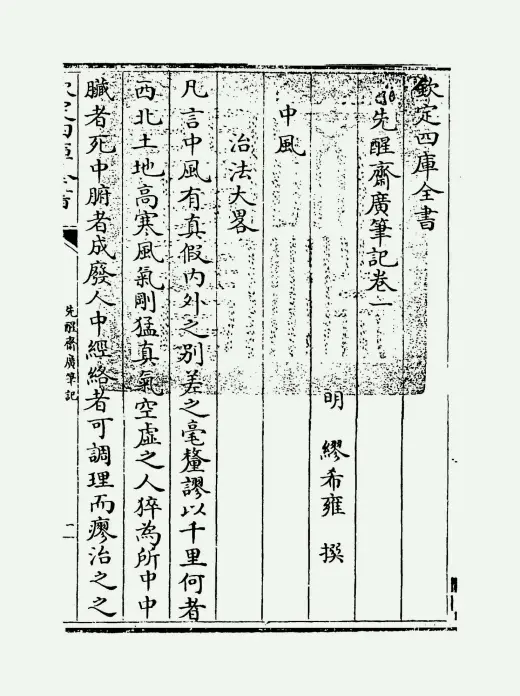 欽定四庫全書
先醒齋廣筆記卷一
明 繆希雍 撰
中風
治法大畧
凡言中風有真假內外之别差之毫釐謬以千里何者
西北土地高寒風氣剛猛真氣空虛之人猝為所中中
臟者死中腑者成廢人中經絡者可調理而瘳治之之
先醒齋廣筆記